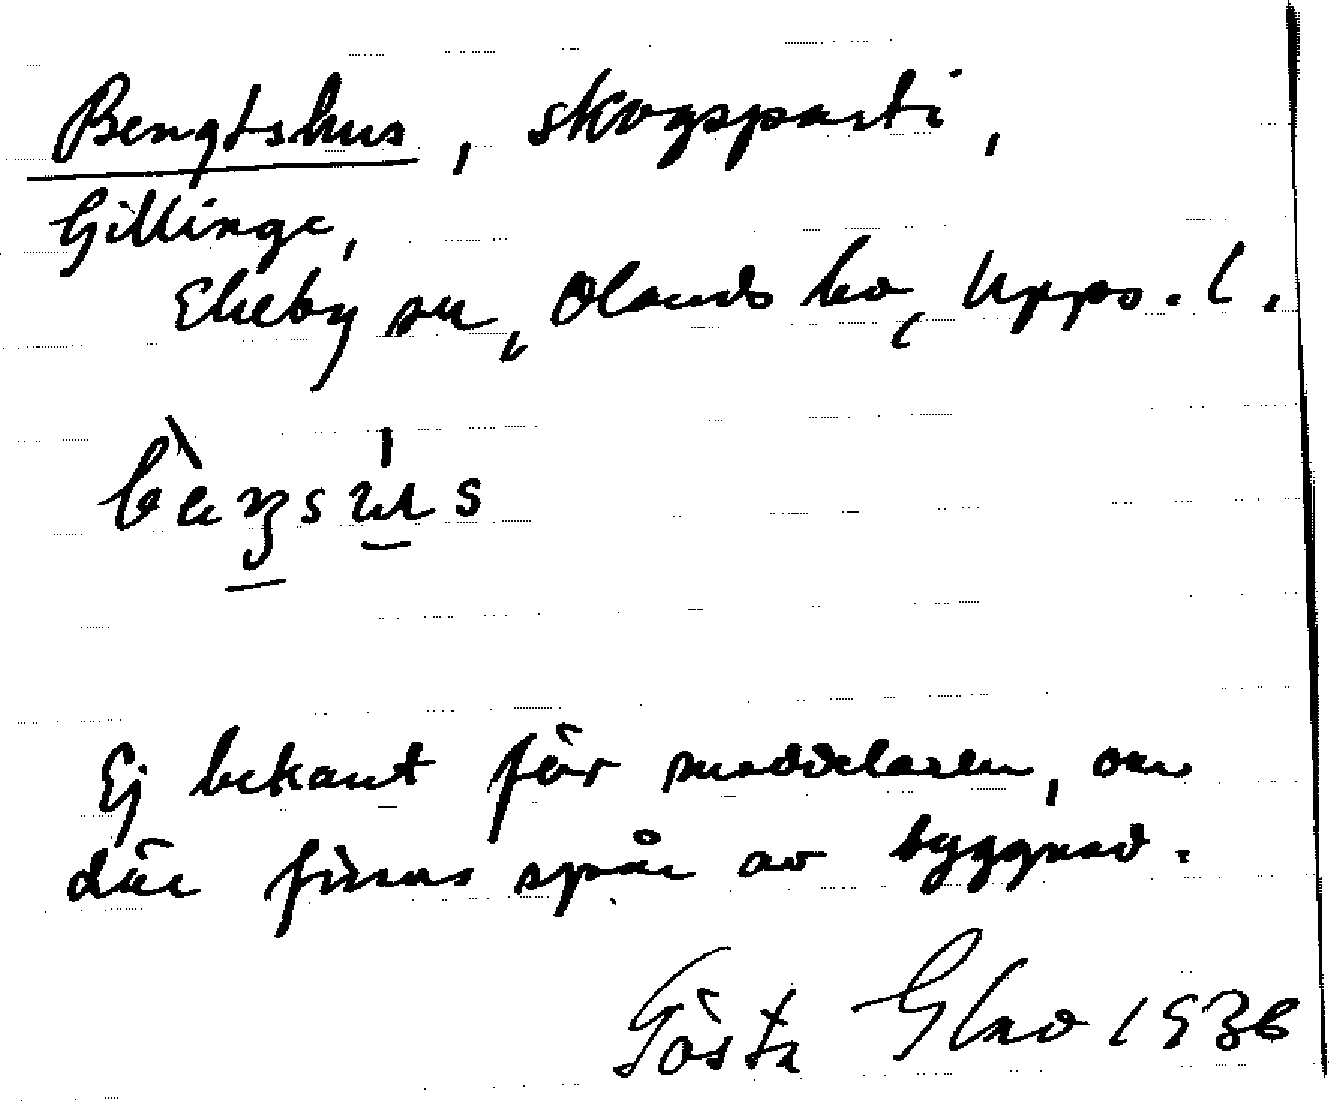 Bengtshus, skogsparti,
Gillinge,
Ekeby sn, Olands hd, Upps. l.
Ej bekant för meddelaren, om
där finns spår av byggnad.
Gösta 1936